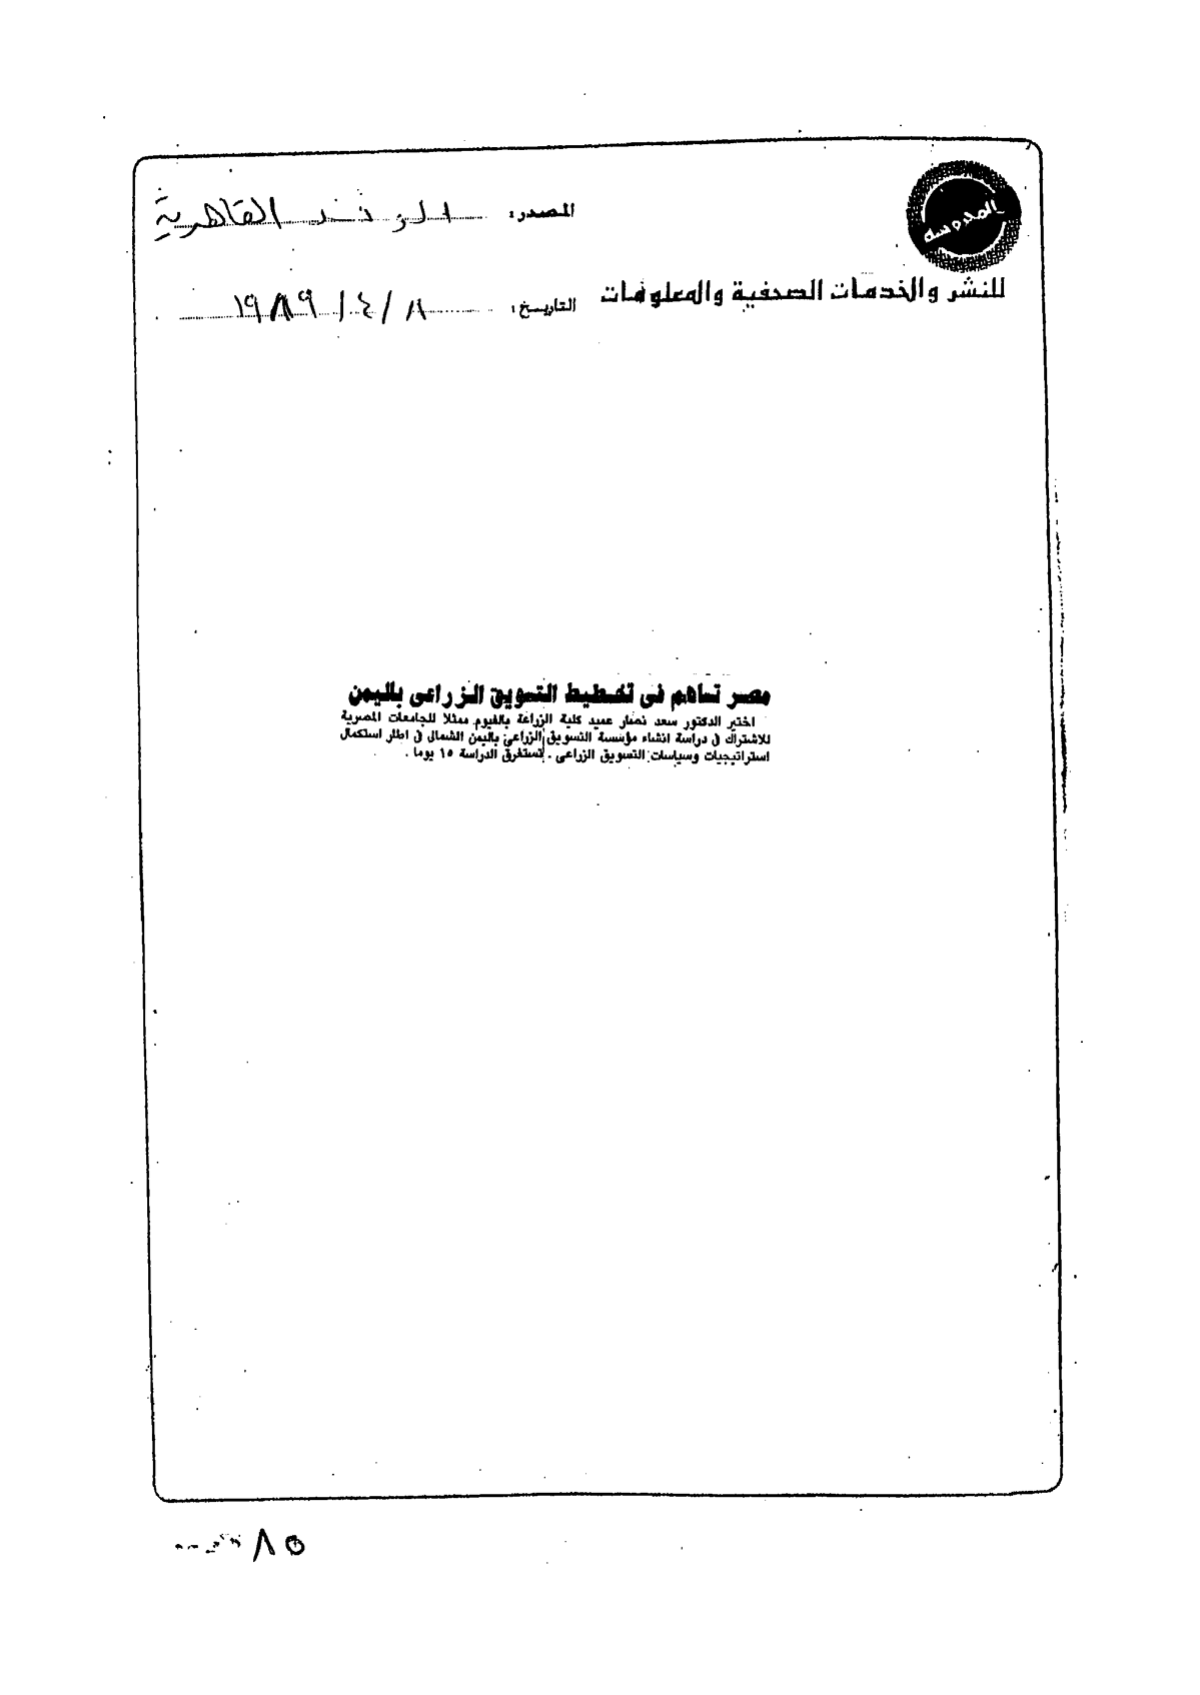 المحروسة
المصدر: الوفد القاهرية
للنشر والخدمات الصحفية والمعلومات
التاريخ: ٨ / ٤ / ١٩٨٩
مصر تساهم فى تخطيط التسويق الزراعى باليمن
اختير الدكتور سعد نصار عميد كلية الزراعة بالفيوم ممثلا للجامعات المصرية
للاشتراك فى دراسة انشاء مؤسسة التسويق الزراعى باليمن الشمالى فى اطار استكمال
استراتيجيات وسياسات التسويق الزراعى . تستغرق الدراسة ١٥ يوما .